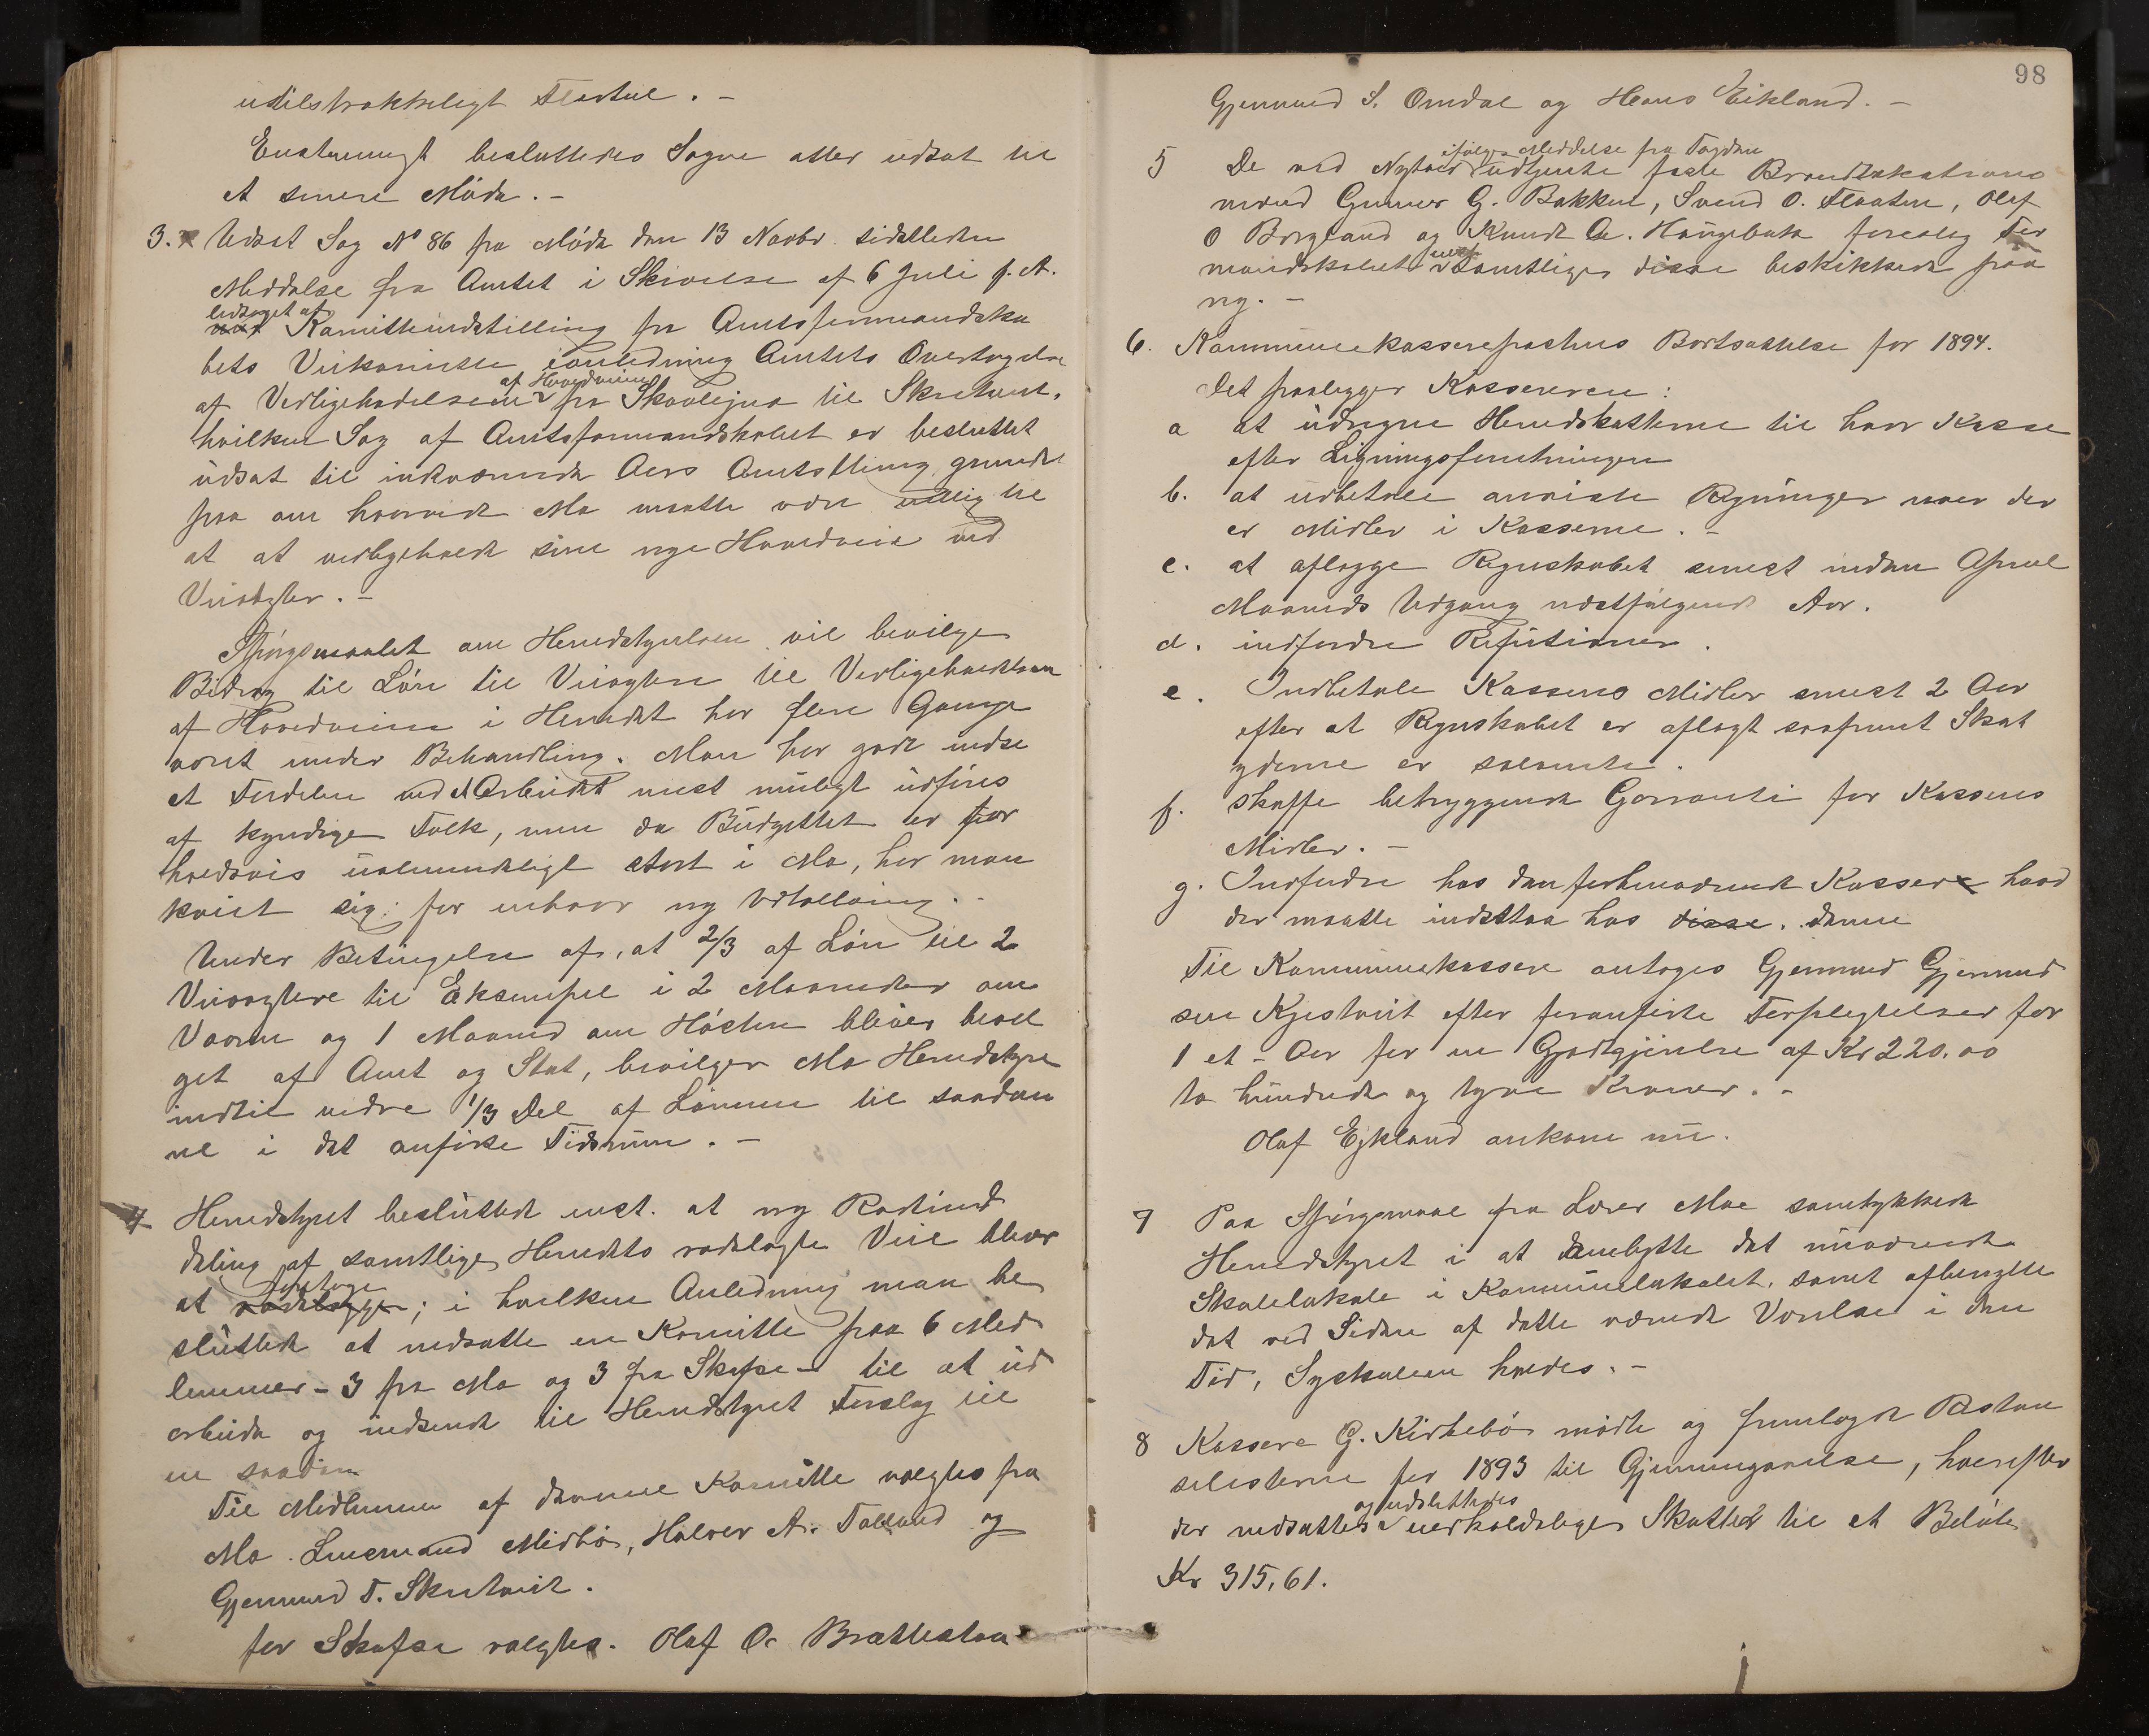 utilstrækkeligt Flertal. –
Enstemmigt besluttedes Sagen atter udsat til
et senere Møde. –
3. Udsat Sag No 86 fra Møde den 13 Novbr. sidstleden
Meddelse fra Amtet i Skrivelse af 6 Juli f. A.
ledsaget af
Komiteindstilling fra Amtsformandska
bets Veikomite i anledning Amtets Overtagelse
af Hovedveien
af Vedligeholdelsen fra Skovlejna til Skretveit,
hvilken Sag af Amtsformandskabet er besluttet
udsat til inkværende Aars Amtsthing, grundet
paa om hvorvidt Mo maatte være villig til
at at vedligeholde sine nye Hovedveie ved
Veivogter. –
Spørgsmaalet om Heredstyrelsen vil bevilge
Bidrag til Løn til Veivogtere til Vedligeholdelsen
af Hovedveien i Heredet har flere Gange
været under Behandling. Man har godt indse
et Fordelen ved Arbeidet mest muligt udføres
af kyndige Folk, men da Budgettet er for
holdsvis ualmindeligt stort i Mo, har man
kviet sig for enhver ny Udtælling. –
Under Betingelse af, at 2/3 af Løn til 2
Veivogtere til Eksempel i 2 Maaneder om
Vaaren og 1 Maaned om Høsten bliver bevil
get af Amt og Stat, bevilger Mo Heredstyre
indtil videre 1/3 Del af Lønnen til saadan
ne i det anførte Tidsrum. –
4 Heredstyret besluttede enst. at ny Rodeind
deling af samtlige Heredets rodelagte Veie bliver
foretage
at rodelægge; i hvilken Anledning man be
sluttede at nedsætte en Komitte paa 6 Med
lemmer – 3 fra Mo og 3 fra Skafse – til at ud
arbeide og indsende til Heredstyret Forslag til
en saadan
Til Medlemmer af denne Komitte valgtes fra
Mo. Lensmand Midbø, Halvor A. Talland og
Gjermund T. Skretveit.
for Skafse valgtes. Olaf O. Brattestaa
98
Gjermund S. Omdal og Hans Eikland. –
ifølge Meddelse fra Fogden
5 De ved Nytaar udtjente faste Brandtakstsions
mænd Gunnar G. Bakken, Svend O. Flaaten, Olaf
O Borgland og Knudt A. Haugebak foreslog For
enst.
mandskabet samtlige disse beskikkede paa
ny. –
6. Kommunekasserepostens Bortsættelse for 1894.
Det paalegger Kassereren:
a at udregne Heredskatterne til hver Kasse
efter Ligningsforretningen
b. at udbetale anviste Regninger naar der
er Midler i Kasserne. –
c. at aflægge Regnskabet senest inden April
Maaneds Udgang næstfølgende Aar.
d. indfordre Refusioner.
e. Indbetale Kassens Midler senest 2 Aar
efter at Regnskabet er aflagt saafremt Skat
yderne er solvente.
f. skaffe betryggende Garranti for Kassens
Midler. –
g. Indfordre hos den forhenværende Kassere hvad
der maatte indestaa hos disse. denne
Til Kommunekassere antoges Gjermund Gjermund
sen Kjestveit efter foranførte Forplegtelser for
1 et – Aar for en Godtgjørelse af Kr 220.00
to hundrede og tyve Kroner. –
Olaf Ejkland ankom nu.
7 Paa Spørgsmaal fra Lærer Moe samtykkede
Heredstyret i at ombytte det nuværende
Skolelokale i Kommunelokalet, samt afbenytte
det ved Siden af dette værende Værelse i den
Tid, Syskolen holdes. –
8 Kassere G. Kirkebø mødte og fremlagde Restan
selisterne for 1893 til Gjennemgaaelse, hvorefter
og udslettedes
der nedsattes uerholdelige Skatter til et Beløb
Kr 315,61.